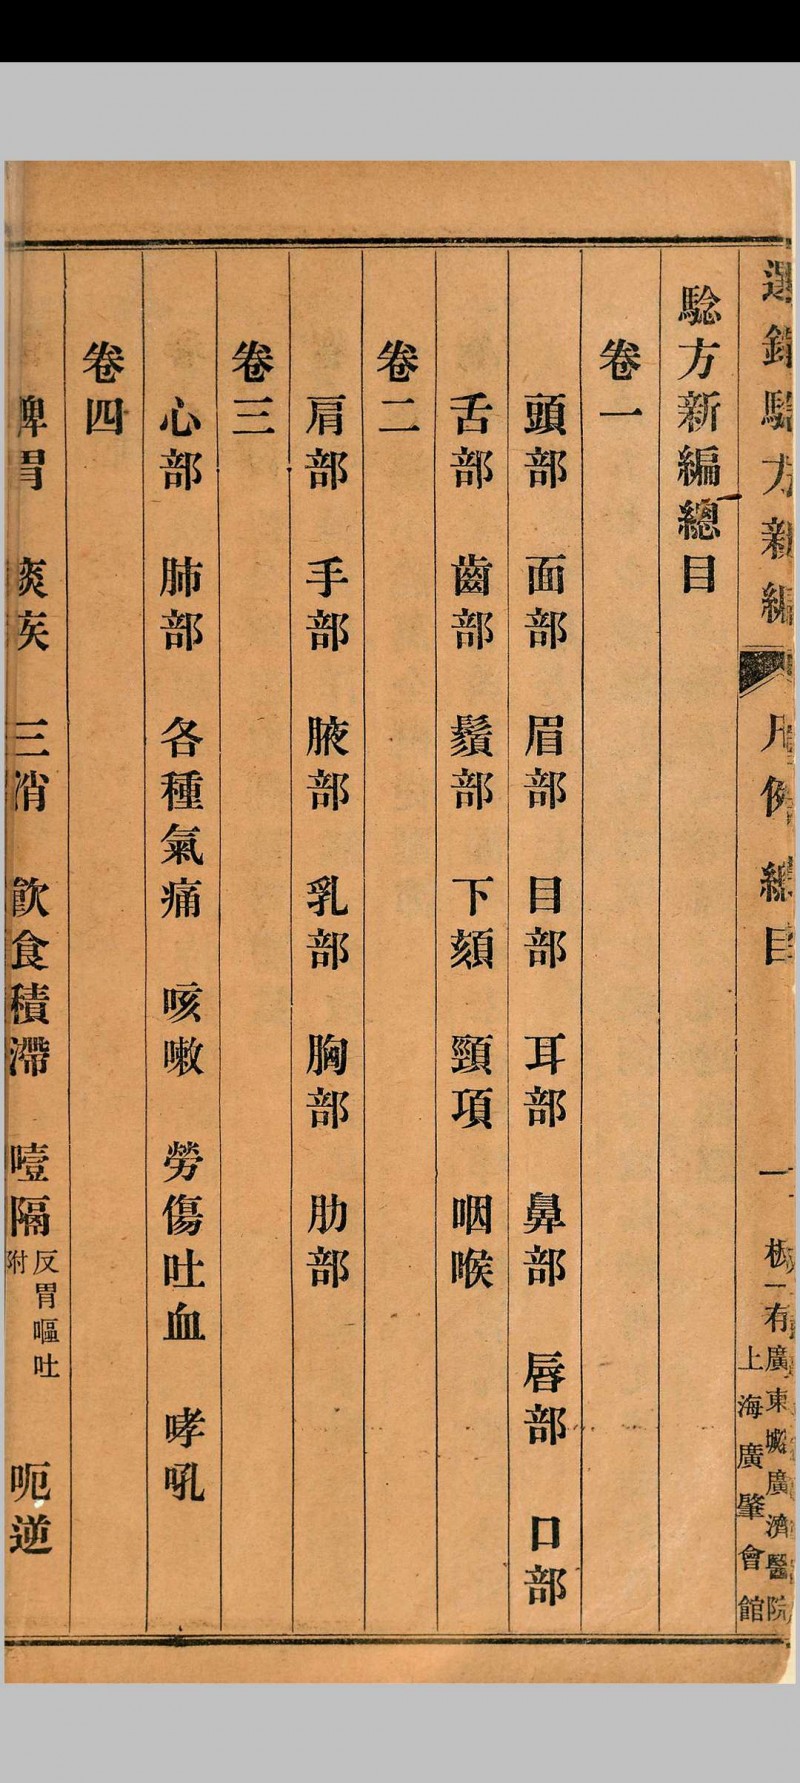 選錄騐方新編 凡例 總目 一 板有 廣東城廣濟醫院
上海廣肇會館
騐方新編總目
卷一
頭部 面部 眉部 目部 耳部 鼻部 唇部 口部
舌部 齒部 鬚部 下頦 頸項 咽喉
卷二
肩部 手部 腋部 乳部 胸部 肋部
卷三
心部 肺部 各種氣痛 咳嗽 勞傷吐血 哮吼
卷四
脾胃 痰疾 三消 飲食積滯 噎隔 反胃嘔吐附 呃逆